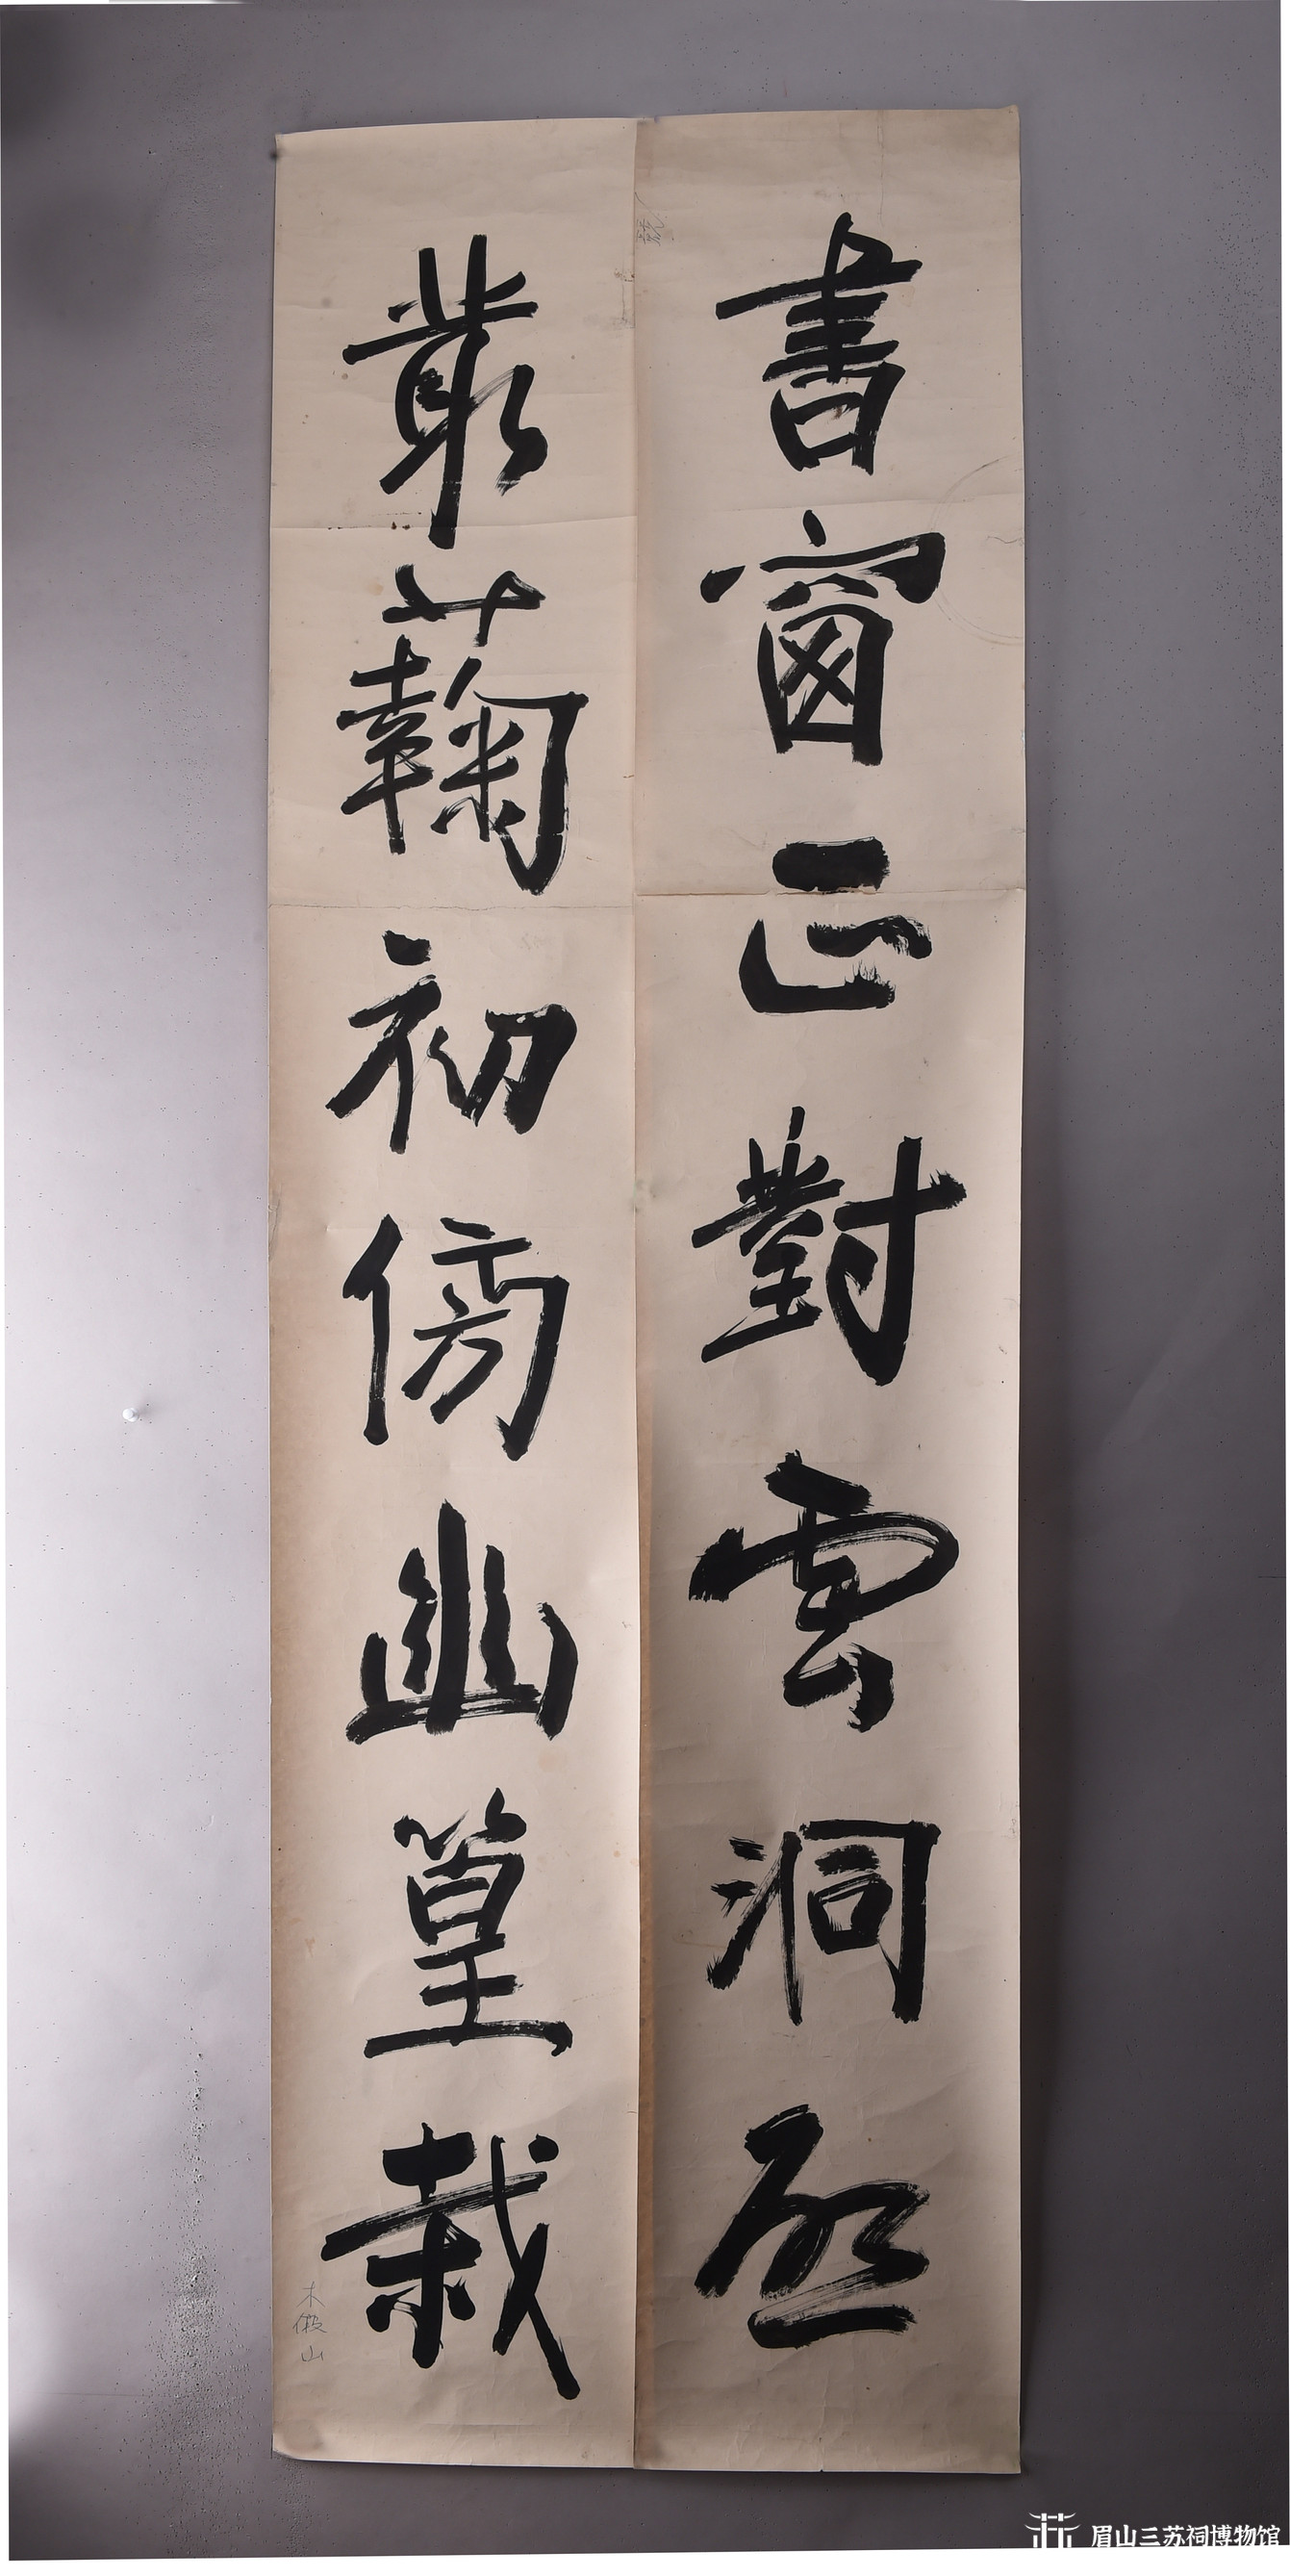 書窗正對雲洞啟
叢蘜初傍幽篁栽
木假山
眉山三苏祠博物馆